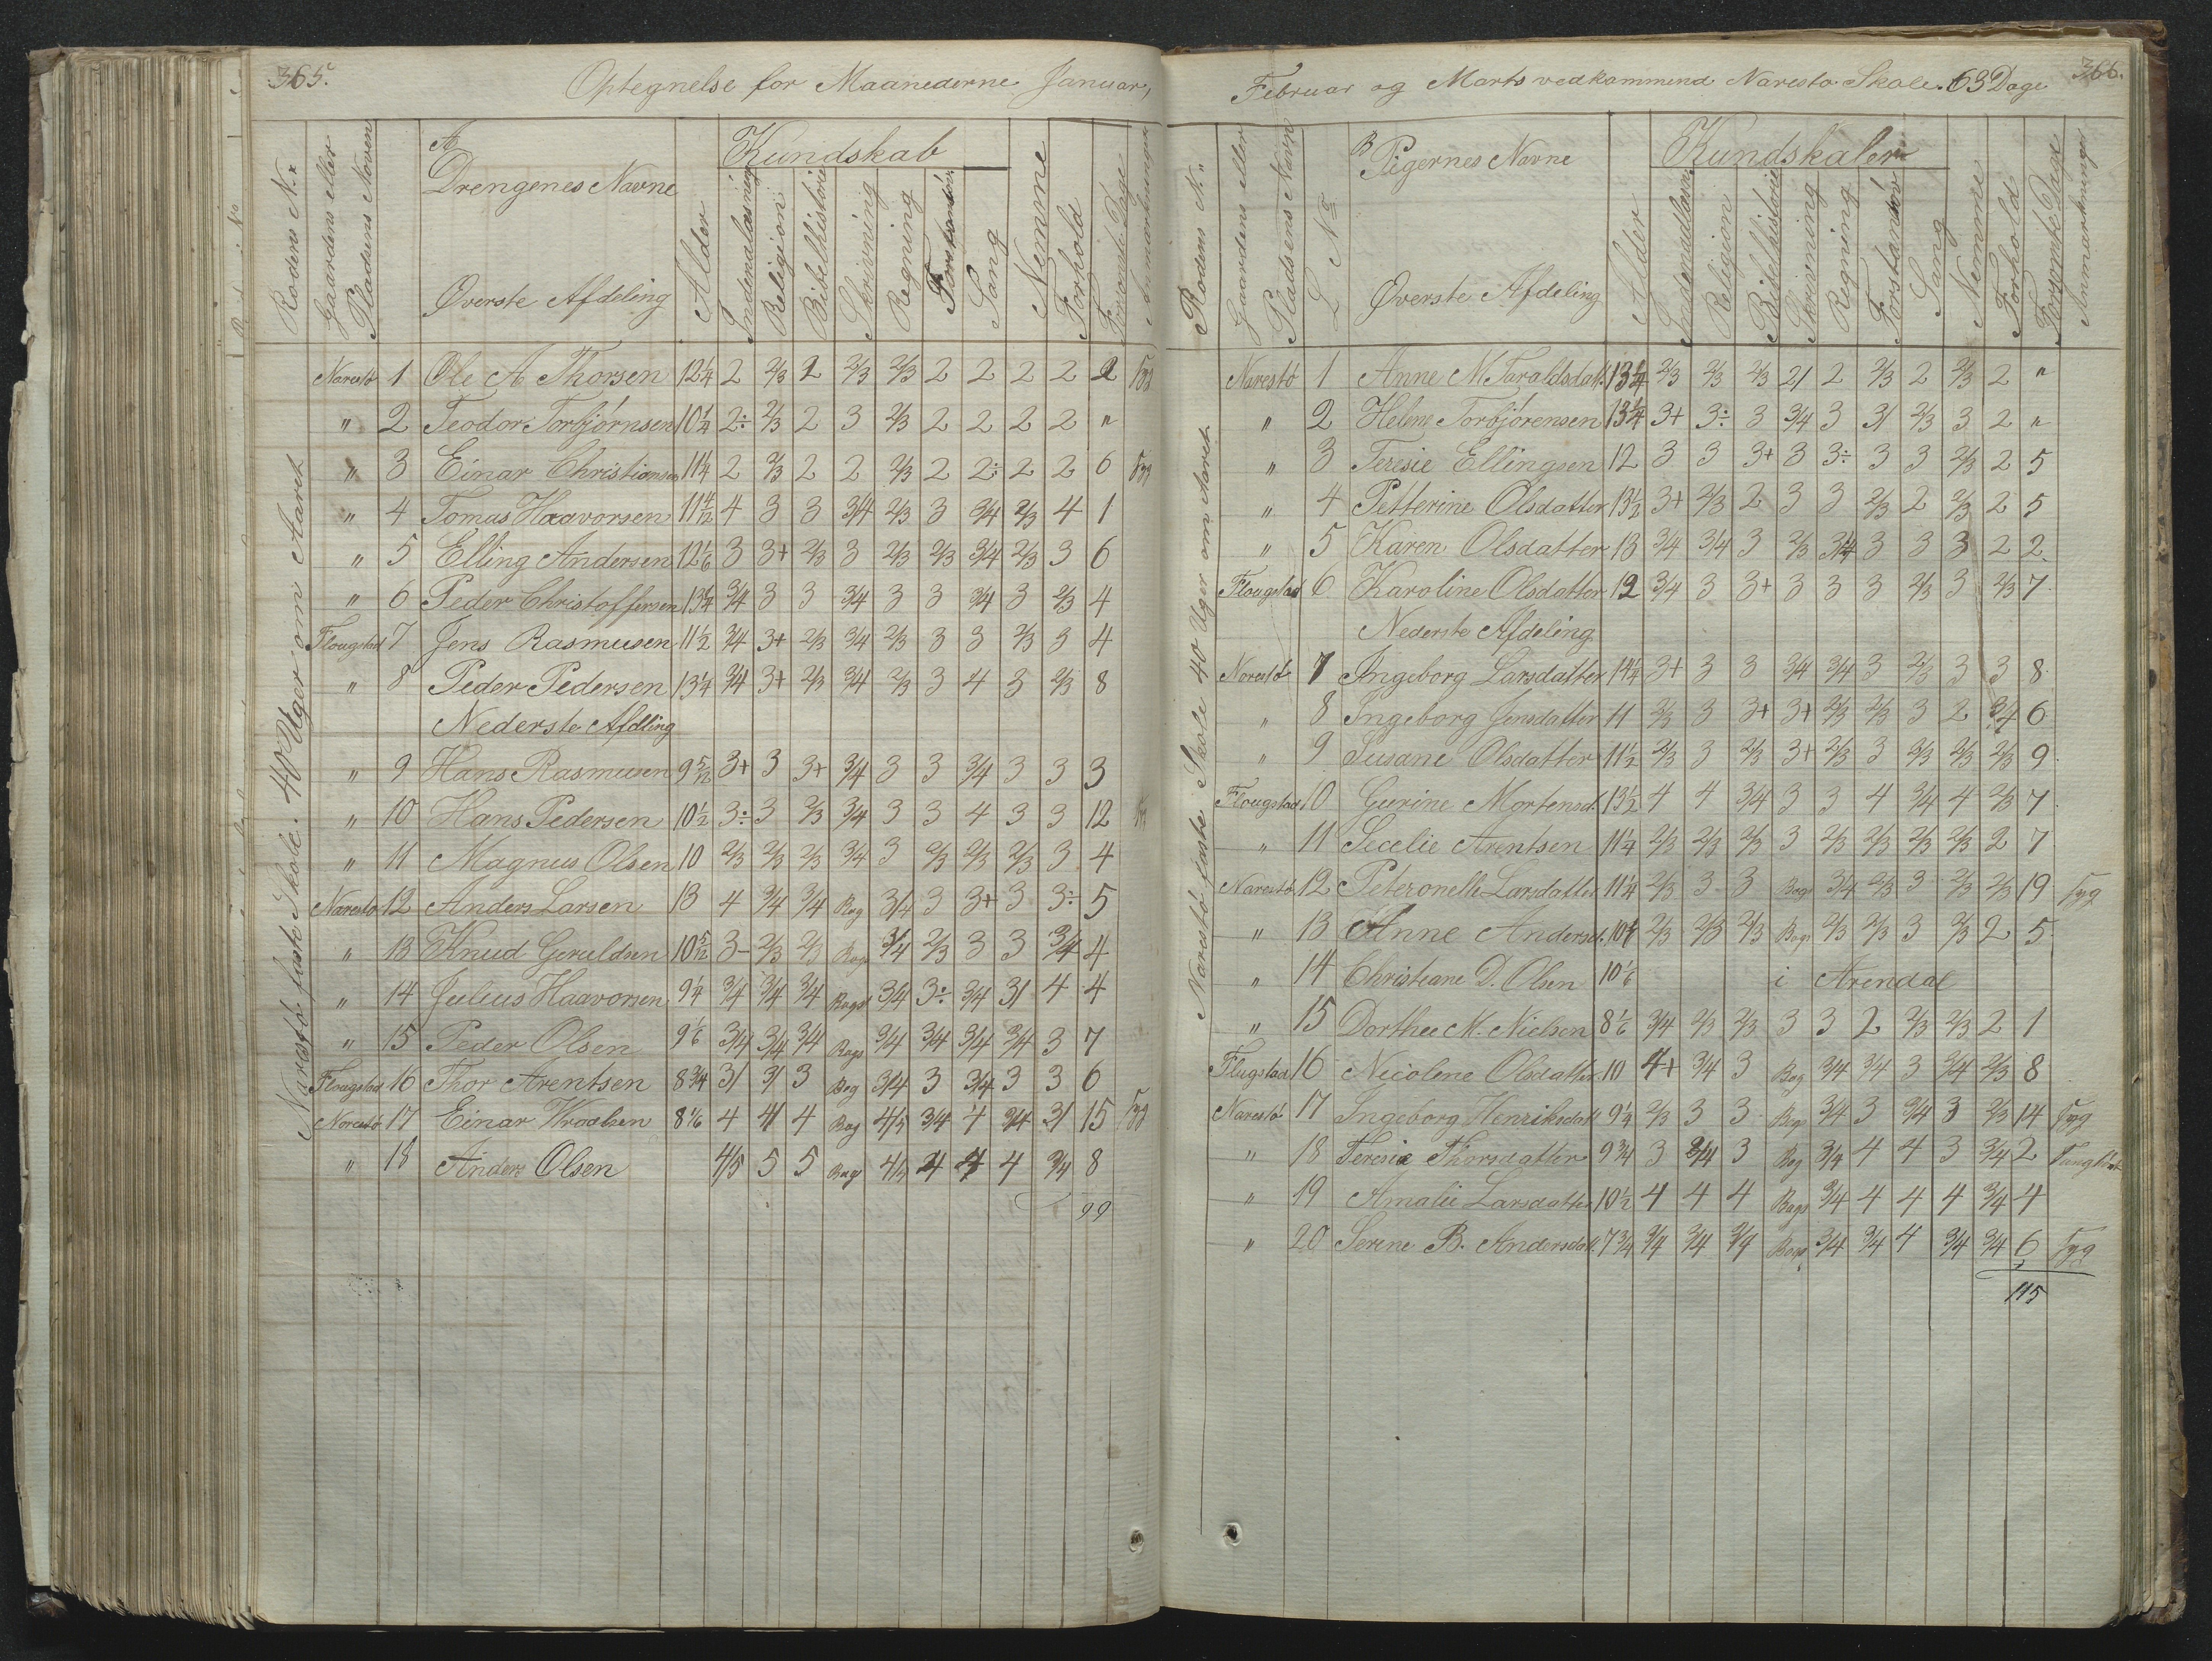 365.
Optegnelse for Maanederne Januar,
Rodens N.r
Gaardens eller Pladsens Navn
A
Drengenes Navne
Øverste Afdeling
Alder
Kundskab
Indenadlæsning
Religion
Bibelhistorie
Skrivning
Regning
Forstand
Sang
Nemme
Forhold
Forsømte Dage
Anmærkninger
Narestø faste Skole. 40 Uger om Aaret
Narestø 1 Ole A Thorsen 12¼ 2 2/3 2 2/3 2/3 2 2 2 2 2 Syg
" 2 Teodor Torbjørnsen 10¼ 2÷ 2/3 2 3 2/3 2 2 2 2 "
" 3 Einar Christiansen 11¼ 2 2/3 2 2 2/3 2 2÷ 2 2 6 Syg
" 4 Tomas Haavorsen 11 4/12 4 3 3 3/4 2/3 3 3/4 2/3 4 1
" 5 Elling Andersen 12 1/6 3 3+ 2/3 3 2/3 2/3 3/4 2/3 3 6
" 6 Peder Christoffersen 13¼ 3/4 3 3 3/4 3 3 3/4 3 2/3 4
Flougstad 7 Jens Rasmusen 11½ 3/4 3+ 2/3 3/4 2/3 3 3 2/3 3 4
" 8 Peder Pedersen 13¼ 3/4 3+ 2/3 3/4 2/3 3 4 3 2/3 8
Nederste Afdling
" 9 Hans Rasmusen 9 5/12 3+ 3 3+ 3/4 3 3 3/4 3 3 3
" 10 Hans Pedersen 10½ 3÷ 3 2/3 3/4 3 3 4 3 3 12
" 11 Magnus Olsen 10 2/3 2/3 2/3 3/4 3 2/3 2/3 2/3 3 4
Narestø 12 Anders Larsen 13 4 3/4 3/4 Bog 3/4 3 3+ 3 3÷ 5
" 13 Knud Geruldsen 10 5/12 3- 2/3 2/3 Bogs 3/4 2/3 3 3 3/4 4
" 14 Julius Haavorsen 9¼ 3/4 3/4 3/4 Bogs 3/4 3÷ 3/4 3/ 4 4
" 15 Peder Olsen 9 1/6 3/4 3/4 3/4 Bogs 3/4 3/4 3/4 3/4 3 7
Flougstad 16 Thor Arentsen 8 3/4 3/ 3/ 3 Bog 3/4 3 3/4 3 3 6
Narestø 17 Einar 8 1/6 4 4/ 4 Bog 4/5 3/4 4 3/4 3/ 15 Syg
" 18 Anders Olsen 4/5 5 5 Bog 4/5 4 4 4 3/4 8
99
Februar og Marts vedkommend Narestø Skole. 63 Dage
366.
Rodens N.r
Gaardens eller Pladsens Navn
L No
B
Pigernes Navne
Øverste Afdeling
Alder
Kundskaber
Indenadlæsn
Religion
Bibelhistorie
Skrivning
Regning
Forstand
Sang
Nemme
Forhold
Forsømte Dage
Anmærkninger
Narestø faste Skole 40 Uger om Aaret
Narestø 1 Anne M Taraldsdatt. 13¼ 2/3 2/3 2/3 2/ 2 2/3 2 2/3 2 "
" 2 Helene Torbjørensen 13¼ 3+ 3÷ 3 3/4 3 3/ 2/3 3 2 "
" 3 Teresie Ellingsen 12 3 3 3+ 3 3÷ 3 3 2/3 2 5
" 4 Petterine Olsdatter 13½ 3+ 2/3 2 3 3 2/3 2 2/3 2 5
" 5 Karen Olsdatter 13 3/4 3/4 3 2/3 3/4 3 3 3 2 2
Flougstad 6 Karoline Olsdatter 12 3/4 3 3+ 3 3 3 2/3 3 2/3 7
Nederste Afdeling
Narestø 7 Ingeborg Larsdatter 14¼ 3+ 3 3 3/4 3/4 3 2/3 3 3 8
" 8 Ingeborg Jensdatter 11 2/3 3 3+ 3+ 2/3 2/3 3 2 3/4 6
" 9 Susane Olsdatter 11½ 2/3 3 2/3 3+ 2/3 3 2/3 2/3 2/3 9
Flougstad 10 Gurine Mortensd. 13½ 4 4 3/4 3 3 4 3/4 4 2/3 7
" 11 Secelie Arentsen 11¼ 2/3 2/3 2/3 3 2/3 2/3 2/3 2/3 2 7
Narestø 12 Peteronelle Larsdatter 11¼ 2/3 3 3 Bogs 3/4 2/3 3 2/3 2/3 19 Syg
" 13 Anne Andersd. 10¼ 2/3 2/3 2/3 Bogs 2/3 2/3 3 2/3 2 5
" 14 Christeane D. Olsen 10 1/6 i Arendal
" 15 Dorthee M. Nielsen 8 1/6 3/4 2/3 2/3 3 3 2 2/3 2/3 2 1
Flugstad 16 Nicoline Olsdatter 10 4+ 3/4 3 Bog 3/4 3/4 3 3/4 2/3 8
Narestø 17 Ingeborg Henriksdat 9¼ 2/3 3 3 Bog 3/4 3 3/4 3 2/3 14 Syg
" 18 Teresia Thorsdatter 9 3/4 3 3/4 3 Bog 3/4 4 4 3 3/4 2
" 19 Amalie Larsdatter 10½ 4 4 4 Bogs 3/4 4 4 4 3/4 4
" 20 Serine B. Andersdatt. 7 3/4 3/4 3/4 3/4 Bogs 3/4 3/4 4 3/4 3/4 6 Syg
115